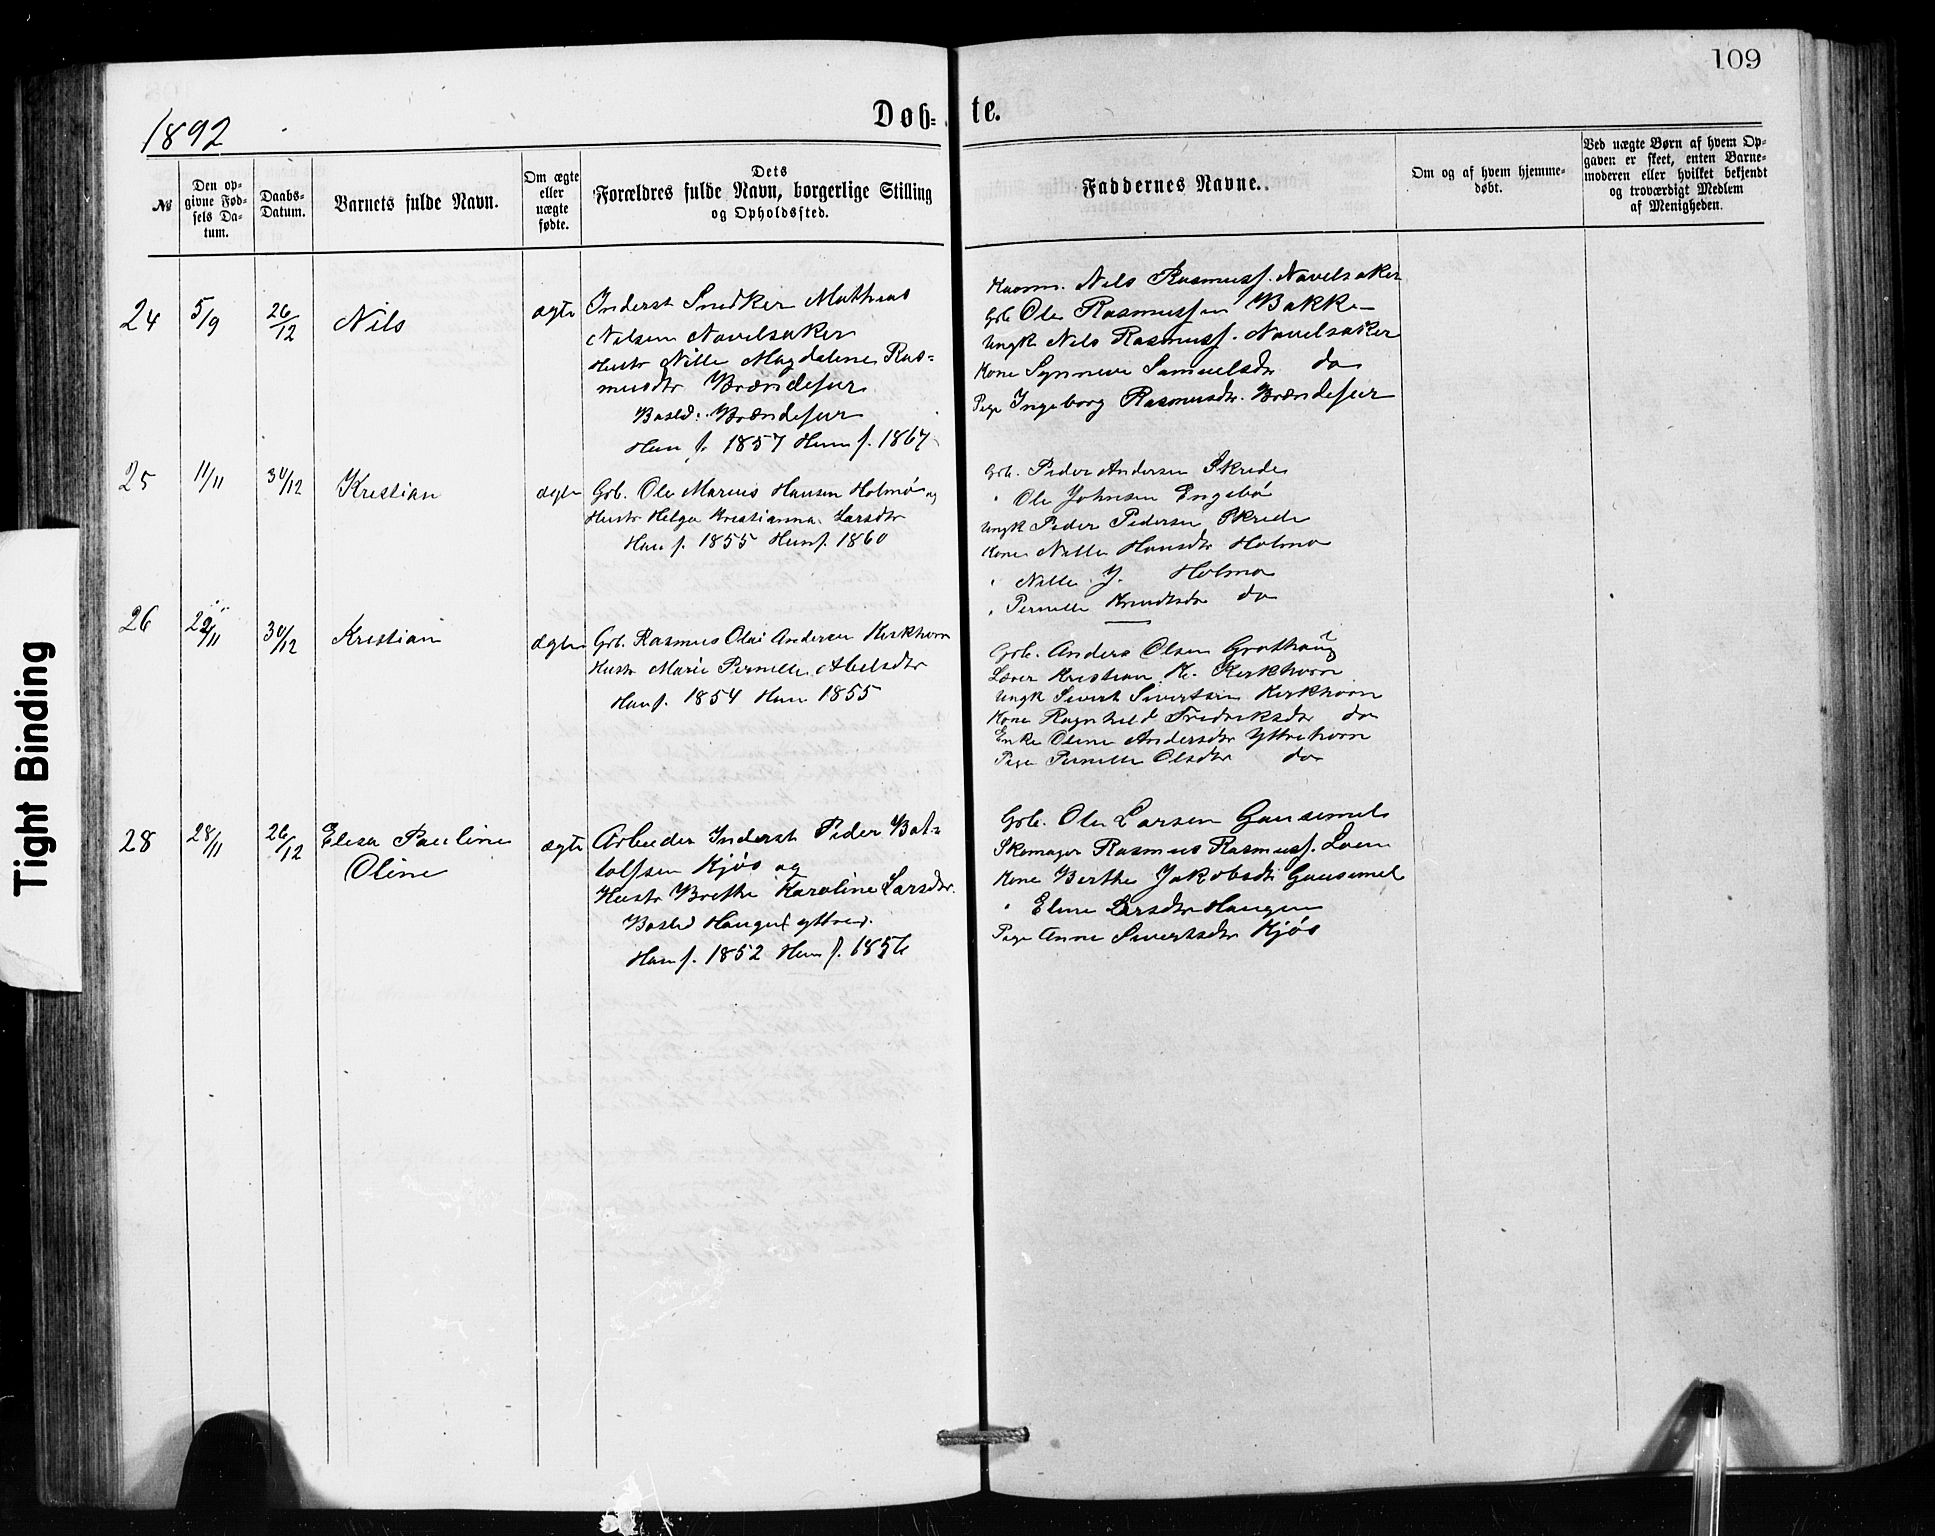 109
1892
Døb- te.
№
Den op-
givne Fød-
sels Da-
tum.
Daabs-
Datum.
Barnets fulde Navn.
Om ægte
eller
uægte
fødte.
Dets
Forældres fulde Navn, borgerlige Stilling
og Opholdssted.
Faddernes Navne.
Om og af hvem hjemme-
døbt.
Ved uægte Børn af hvem Op-
gaven er skeet, enten Barne-
moderen eller hvilket bekjendt
og troværdigt Medlem
af Menigheden.
24 5/9 26/12 Nils ægte
Inderst Snedker Mathias
Nilsen Navelsaker
Hustr Nille Magdalene Ras=
musdtr Brændesur
Bosted: Brændesur
Han f. 1857 Hun f. 1867
Nils Rasmuss. Navelsaker
Grb Ole Rasmussen Bakke
Ungk Nils Rasmuss. Navelsaker
Kone Synneve Samuelsdtr do
Pige Ingeborg Rasmusdtr. Brændesur
25 11/11 30/12 Kristian ægte
Grb. Ole Marius Hansen Holmø og
Hustr Helga Kristianna Larsdtr
Han f. 1855 Hun f. 1860
Grb. Peder Andersen Skrede
" Ole Johnsen Engebø
Ungk Peder Pedersen Skrede
Kone Nille Hansdtr Holmø
" Nille J. Holmø
" Pernille Knudtsdtr do
26 22/11 30/12 Kristian ægte
Grb. Rasmus Olai Andersen Kirkhorn
Hustr Marie Pernille Abelsdtr
Han f. 1854 Hun 1855
Grb. Anders Olsen Grothaug
Lærer Kristian K. Kirkhorn
Ungk Sivert Sivertsen Kirkhorn
Kone Ragnhild Fredriksdtr do
Enke Oline Andersdtr Ytrehorn
Pige Pernille Olsdtr do
28 28/11 26/12 Elisa Pauline
Oline
ægte
Arbeider Inderst Peder Bot=
tolfsen Kjøs og
Hustr Brethe Karoline Larsdtr.
Bosted Haugen yttre
Han f. 1852 Hun f. 1856
Grb. Ole Larsen Gausemel
Skomager Rasmus Rasmuss. Loen
Kone Berthe Jakobsdtr Gausemel
" Eline Larsdtr Haugen
Pige Anne Sivertsdtr Kjøs
Tight Binding